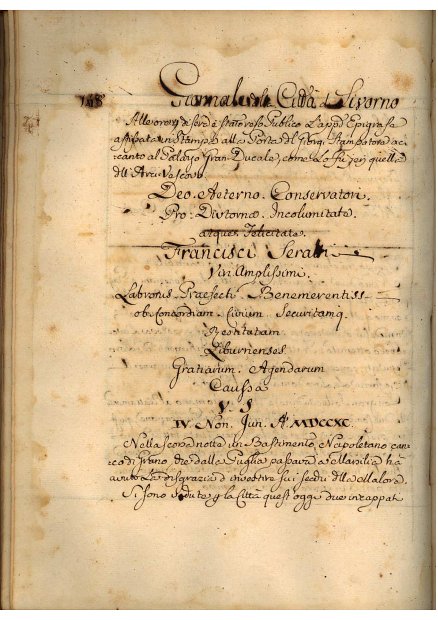 168 Giornale della Città di Livorno
Alle ore 19 di sera è stato reso Publico L'app.o Epigrafe
a stampata in Stampa alla Porta del Giorgi Stampatore ac-
canto al Palazzo Gran-Ducale, come lo fu jeri quella
dell'Arcivescovo.
Deo. Aeterno. Conservatori.
Pro. Diuturna. Incolumitate.
atque. Felicitate.
Francisci Seratti
Viri Amplissimi.
Labronis Praefecti. Benemerentiss
ob. Concordiam. Civium Securitamq.
Restitutam
Liburnenses
Gratiarum. Agendarum
Caussa
V. S
IV Non. Jun. A. MDCCXC.
Nella scorsa notte un Bastimento Napoletano cari-
co di Grano, che dalla Puglia passava a Marsilia ha
avuto La disgrazia d'investire sui secchi della Meloria.
Si sono vedute p la Città quest'oggi due incappati